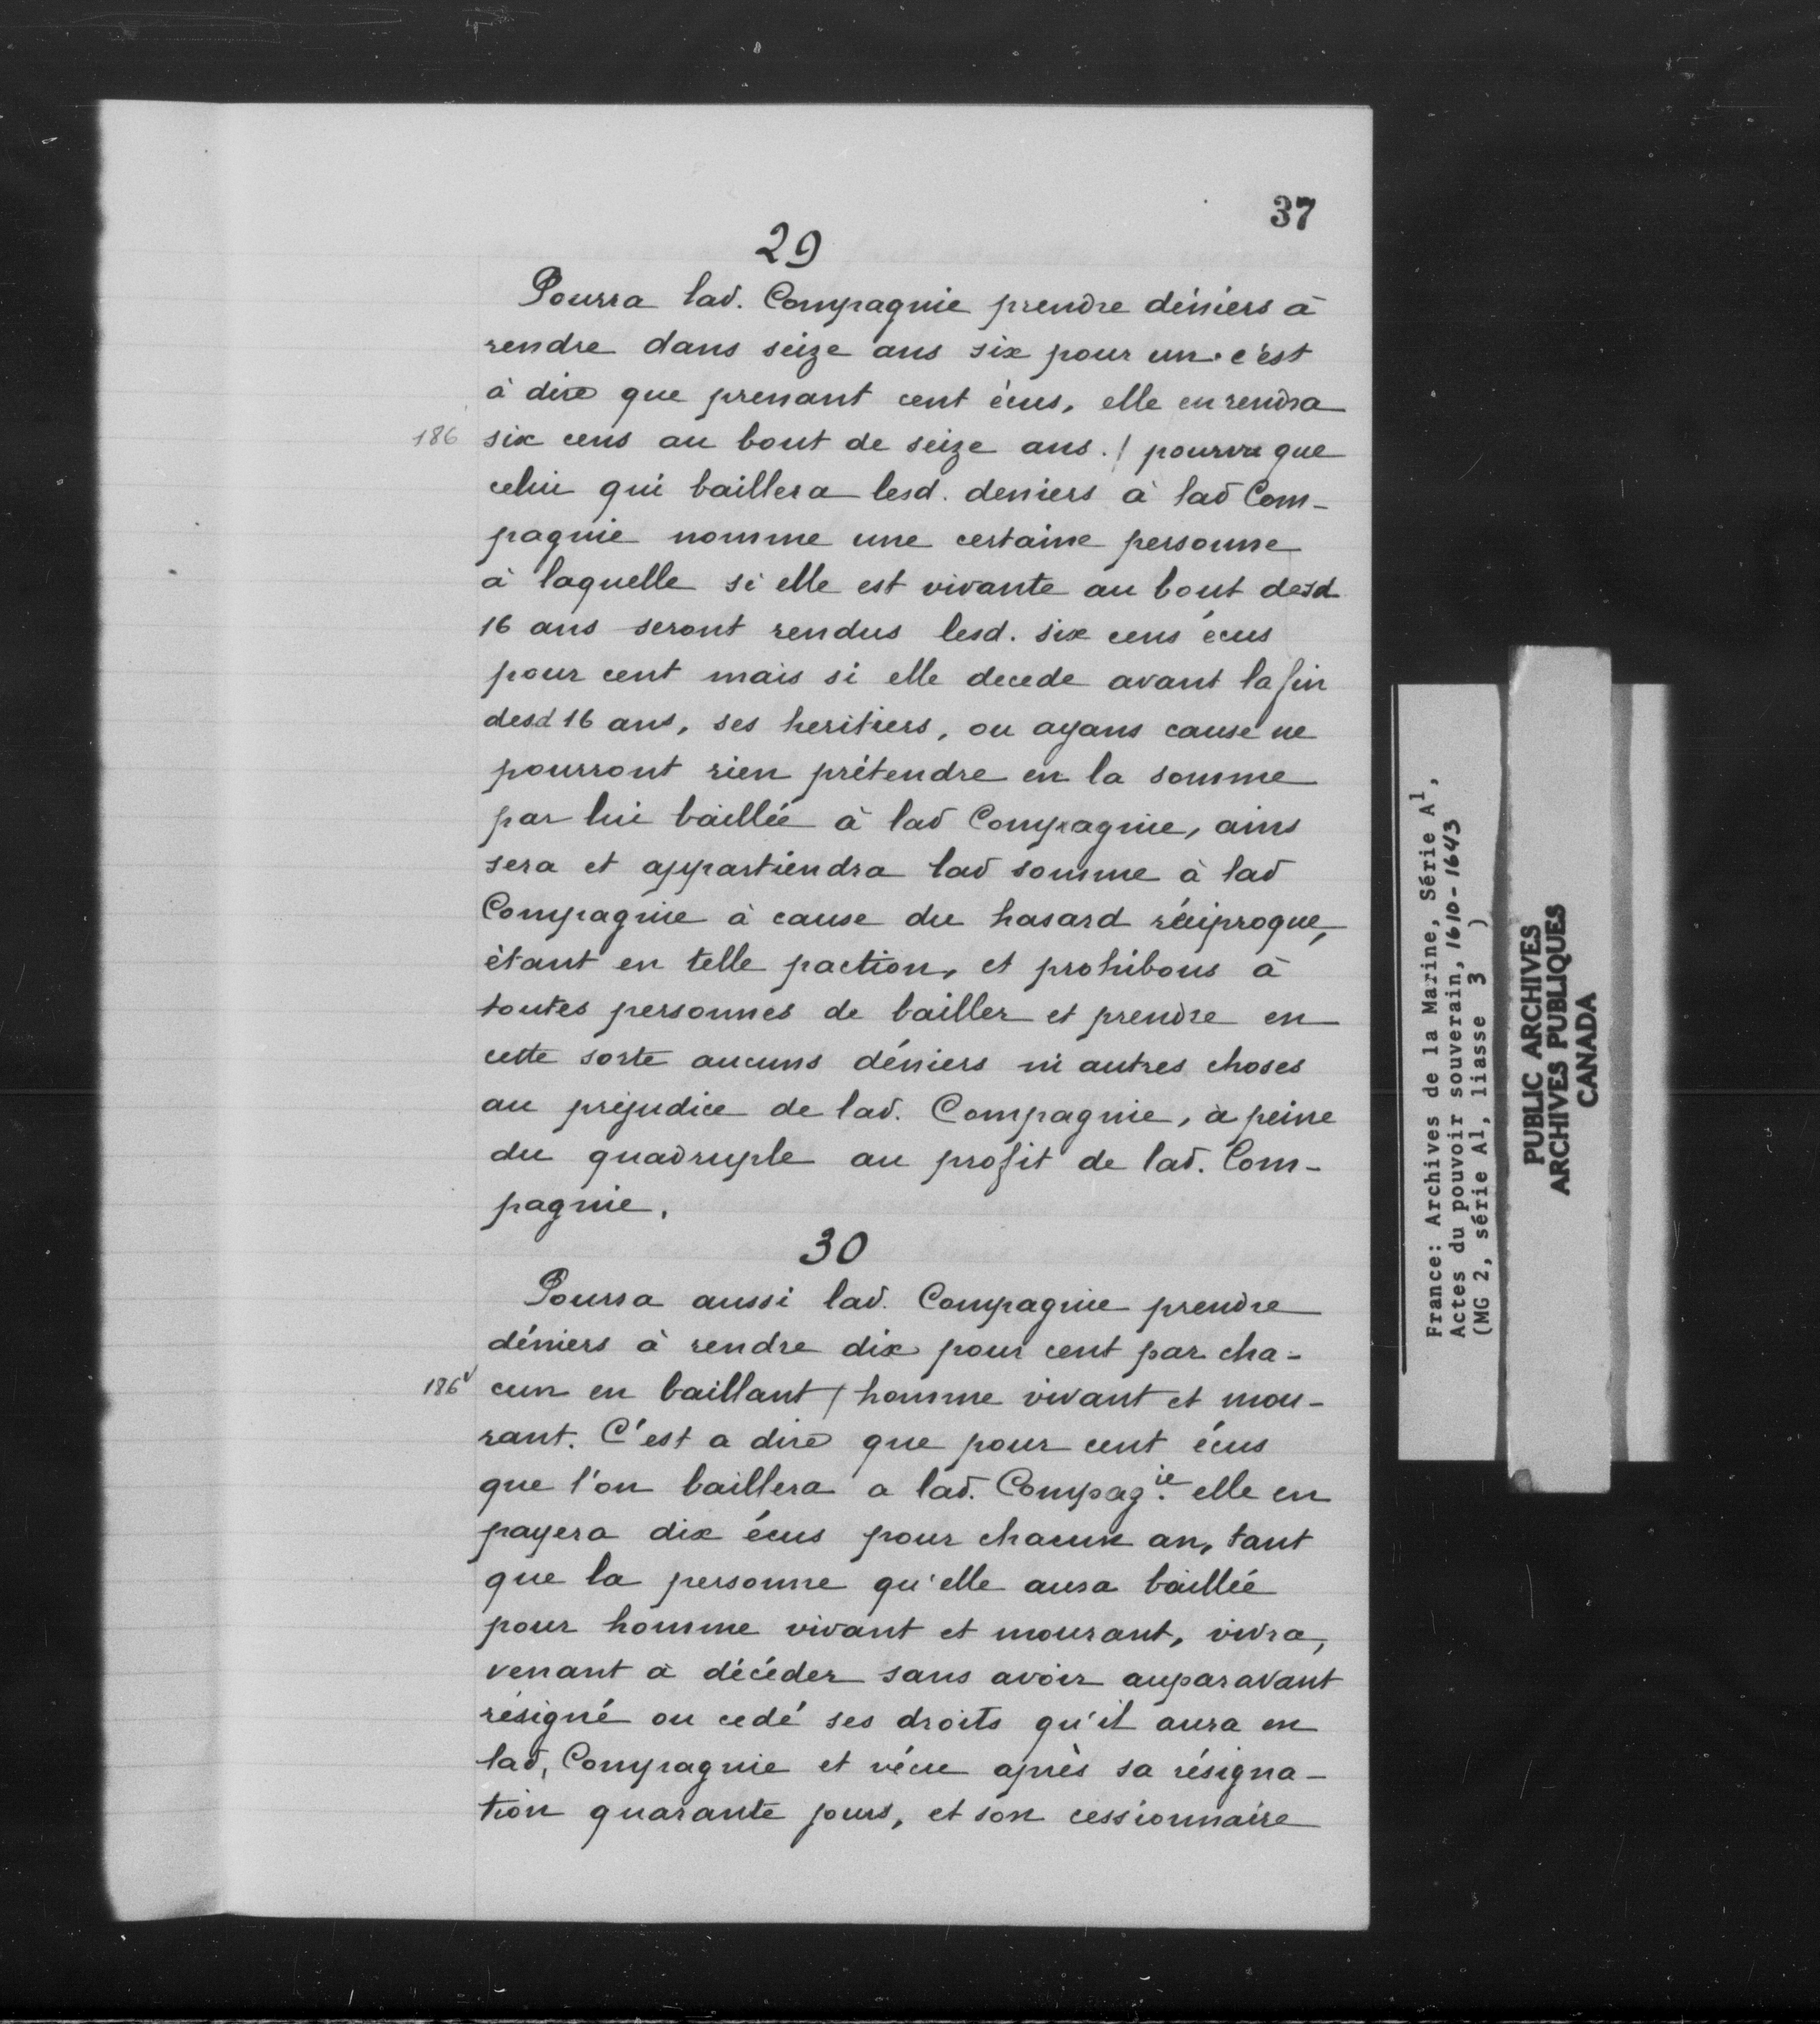 37
29
Pourra lad. Compagnie prendre déniers à
rendre dans seize ans six pour un. c'est
à dire que prenant cent écus, elle en rendra
186 six cens au bout de seize ans. / pourvu que
celui qui baillera lesd. deniers à lad Com-
pagnie nomme une certaine personne
à laquelle si elle est vivante au bout desd
16 ans seront rendus lesd. six cens écus
pour cent mais si elle decede avant la fin
desd 16 ans, ses heritiers, ou ayans cause ne
pourront rien prétendre en la somme
par lui baillée à lad Compagnie, ains
sera et appartiendra lad somme à lad
Compagnie à cause du hasard réciproque,
étant en telle paction, et prohibons à
toutes personnes de bailler et prendre en
cette sorte aucuns déniers ni autres choses
au préjudice de lad. Compagnie, à peine
du quadruple au profit de lad. Com-
pagnie.
30
Pourra aussi lad. Compagnie prendre
déniers à rendre dix pour cent par cha-
186v cun en baillant / homme vivant et mou-
rant. C'est a dire que pour cent écus
que l'on baillera a lad. Compag.ie elle en
payera dix écus pour chacun an, tant
que la personne qu'elle aura baillée
pour homme vivant et mourant, vivra,
venant à décéder sans avoir auparavant
résigné ou cedé ses droits qu'il aura en
lad, Compagnie et vécu après sa résigna-
tion quarante jours, et son cessionnaire
France: Archives de la Marine, Série A1,
Actes du pouvoir souverain, 1610-1643
(MG 2, série A1, liasse 3 )
PUBLIC ARCHIVES
ARCHIVES PUBLIQUES
CANADA